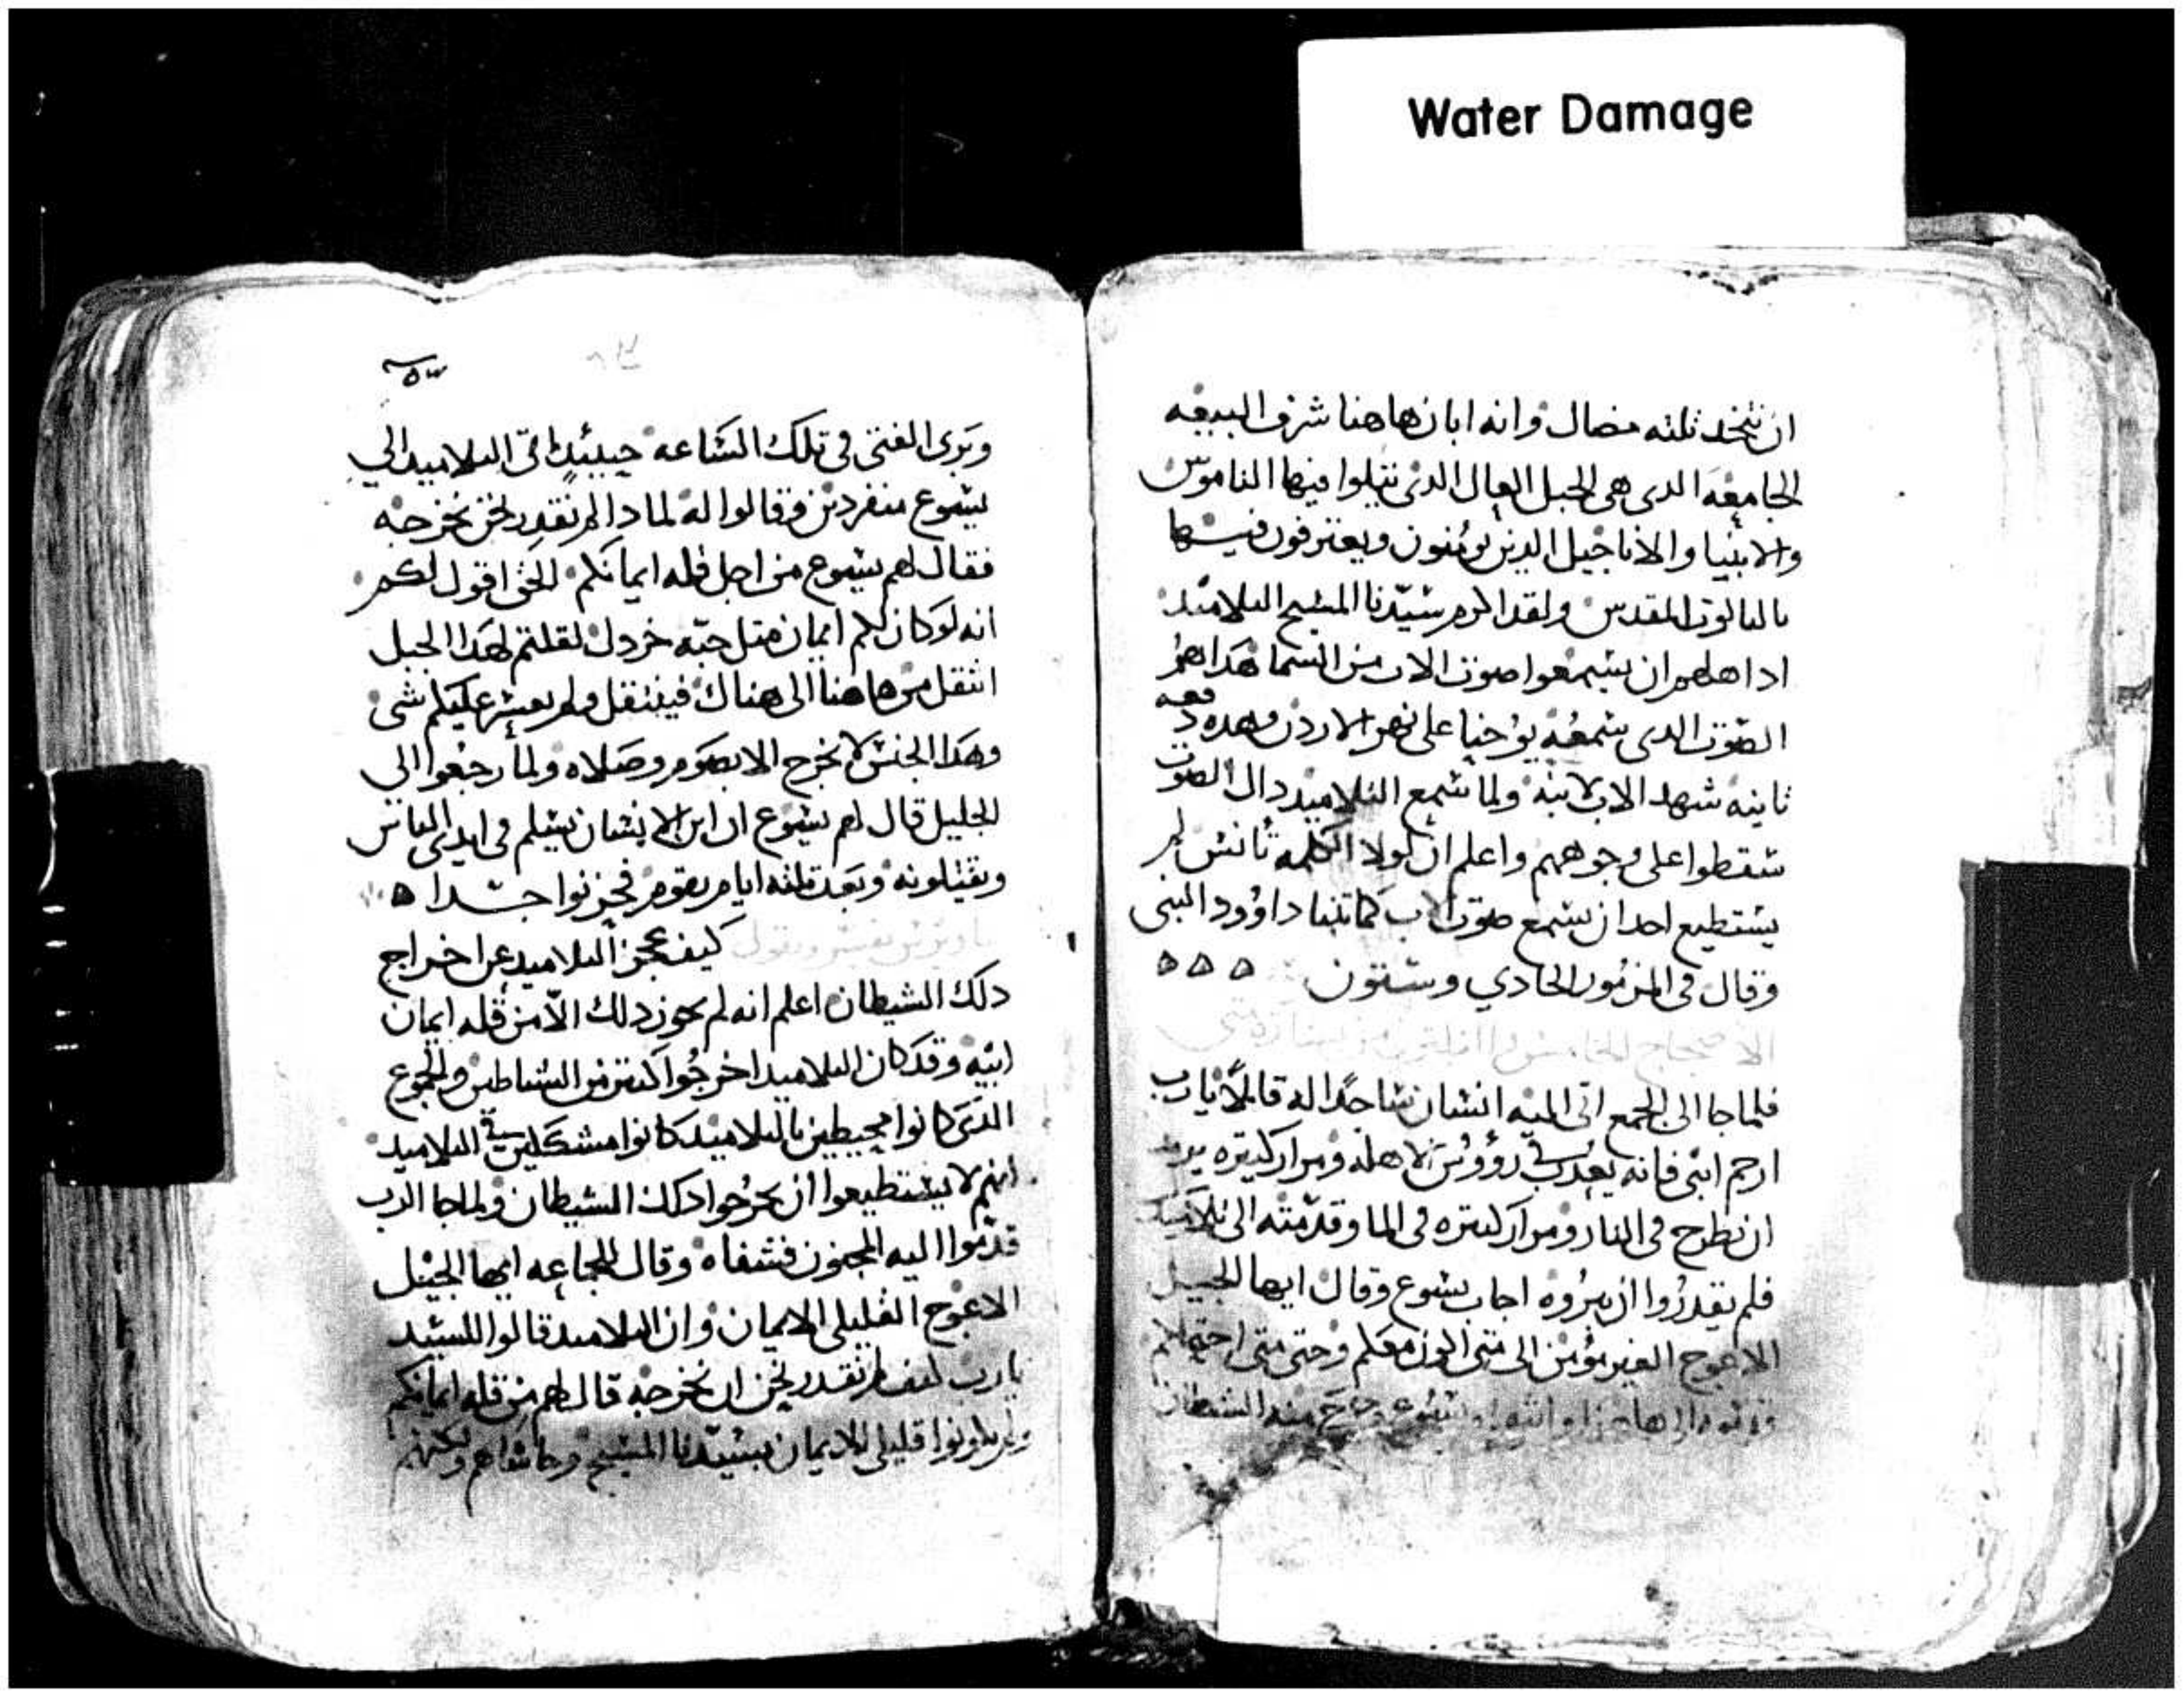 Water Damage
ان نتخد ثلثه مضال وانه ابان هاهنا شرف البيعه
الجامعه الدى هي الجبل العال الدى نتيلوا فيها الناموس
والانبيا والاناجيل الدين يومنون ويعترفون فيها
بالتالوت المقدس ولقد اكرم سيدنا المسيح التلاميد
ادا هلهم ان يسمعوا صوت الاب من السما هدا هو
الصوت الدى سمعه يوحنا على نهر الاردن وهده دفعه
ثانيه شهد الاب لابنه ولما سمع التلاميد دال الصوت
سقطوا على وجوههم واعلم ان لولا الكلمه تانس لم
يستطيع احد ان يسمع صوت الاب كما تنبا داوود النبى
وقال فى المزمور الحادي وستون
الاصحاح الخامس
فلما جا الى الجمع اتى اليه انسان ساجدا له قايلا يا رب
ارحم ابنى فانه يعدب فى رووس الاهله ومرار كتيره يريد
ان نطرح فى النار ومرار كتيره فى الما وقدمته الى تلاميدك
فلم يقدروا ان يبروه اجاب يسوع وقال ايها الجيل
الاعوج الغير مومن الى متى اكون معكم وحتى متى احتملكم
قدموه الى هاهنا وانتهره يسوع وخرج منه الشيطان
٥٣
وبرى الفتى فى تلك الساعه حينيد اتى التلاميد الي
يسوع منفردين وقالوا له لمادا لم نقدر نحن نخرجه
فقال لهم يسوع من اجل قله ايمانكم الحق اقول لكم
انه لو كان لكم ايمان متل حبه خردل لقلتم لهدا الجبل
انتقل من هاهنا الى هناك فينتقل ولم يعسر عليكم شى
وهدا الجنس لا يخرج الا بصوم وصلاه ولما رجعوا الى
الجليل قال لهم يسوع ان ابن الانسان يسلم فى ايدى الناس
ويقتلونه وبعد تلته ايام يقوم فحزنوا جدا
ساويرس يفسر ويقول كيف عجز التلاميد عن اخراج
دلك الشيطان اعلم انه لم يحوز دلك الا من قله ايمان
ابيه وقد كان التلاميد اخرجوا كتير من الشياطين والجموع
الدى كانوا محيطين بالتلاميد كانوا مشككين فى التلاميد
انهم لا يستطيعوا ان يخرجوا دلك الشيطان ولما جا الرب
قدموا اليه المجنون فشفاه وقال للجماعه ايها الجيل
الاعوج القليلى الايمان وان التلاميد قالوا للسيد
يا رب كيف لم نقدر نحن ان نخرجه قال لهم من قله ايمانكم
ولم يكونوا قليلى الايمان بسيدنا المسيح وحاشاهم ولكنهم